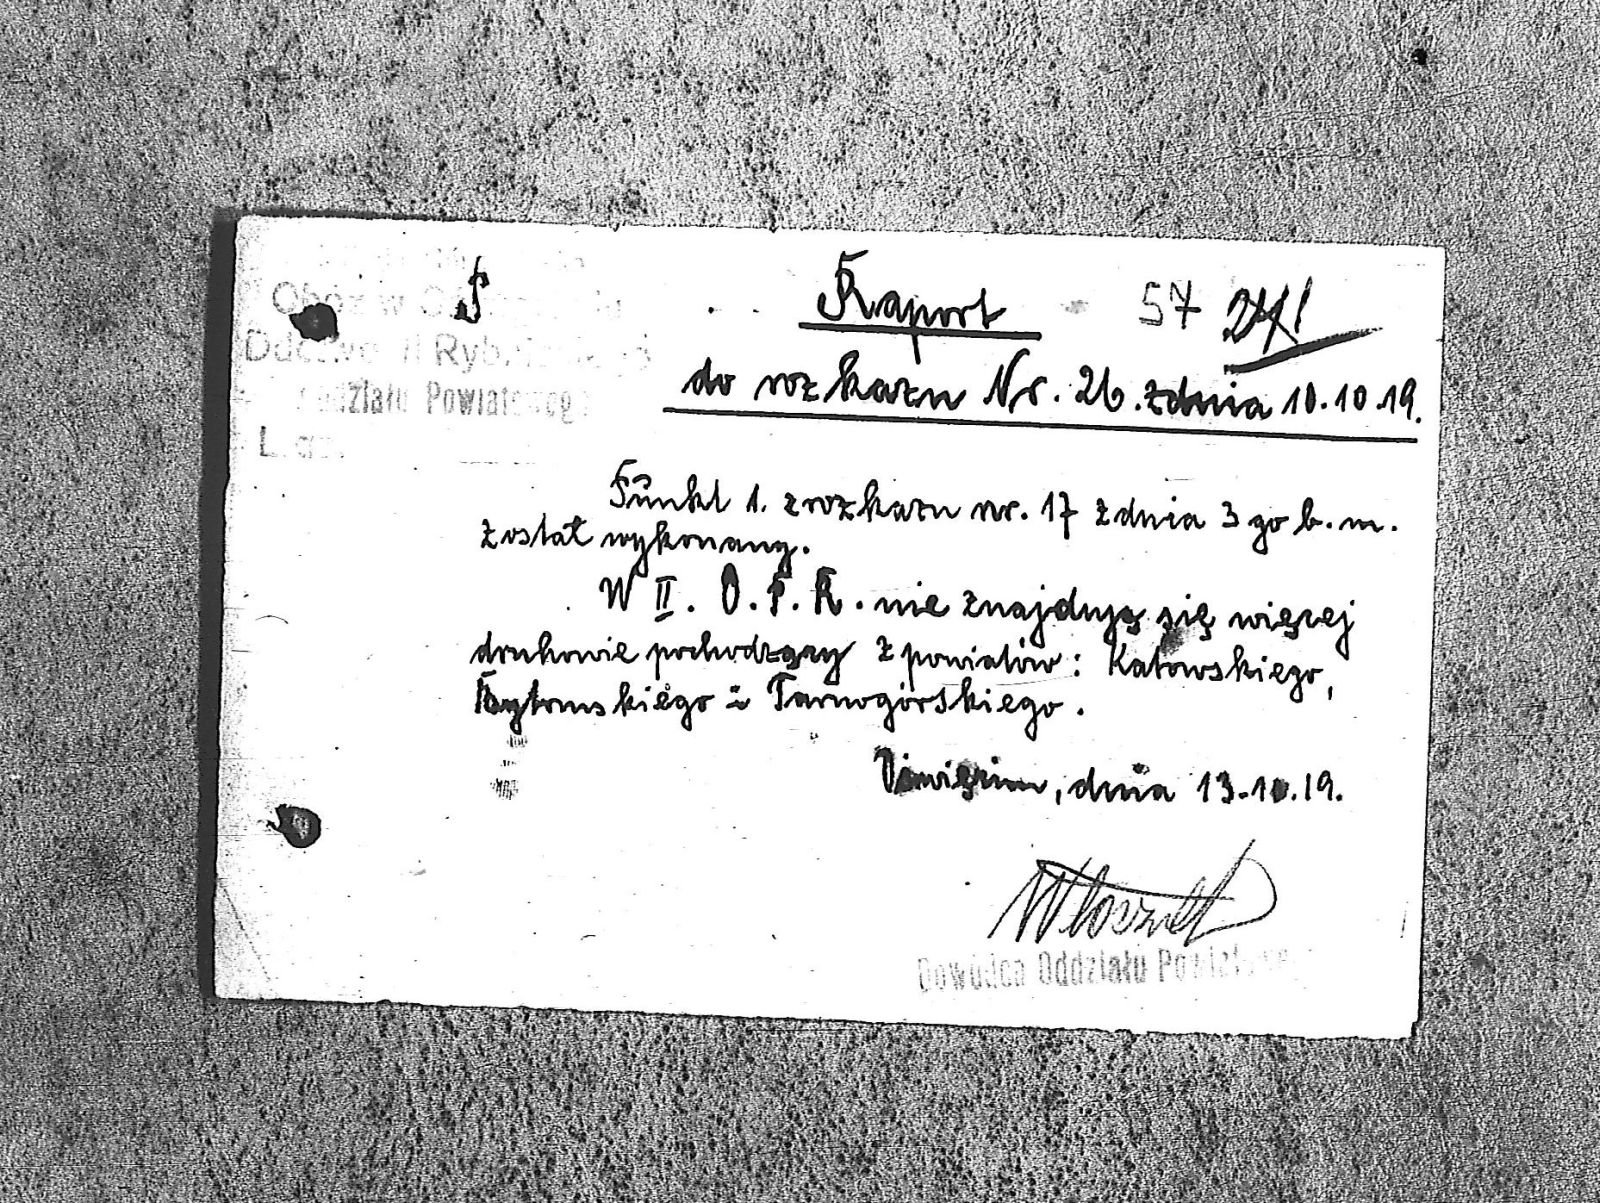 Obóz w
Ddctwo II Ryb.
Oddziału Powiatowego
L.
Raport 57
do rozkazu Nr. 26. z dnia 10.10.19.
Punkt 1. z rozkazu nr. 17 z dnia 3 go b.m.
został wykonany.
W II. O.P.R. nie znajdują się więcej
druhowie pochodzący z powiatów: Katowskiego,
Bytomskiego i Tarnogórskiego.
Oświęcim, dnia 13.10.19.
Dowódca Oddziału Powiatowego